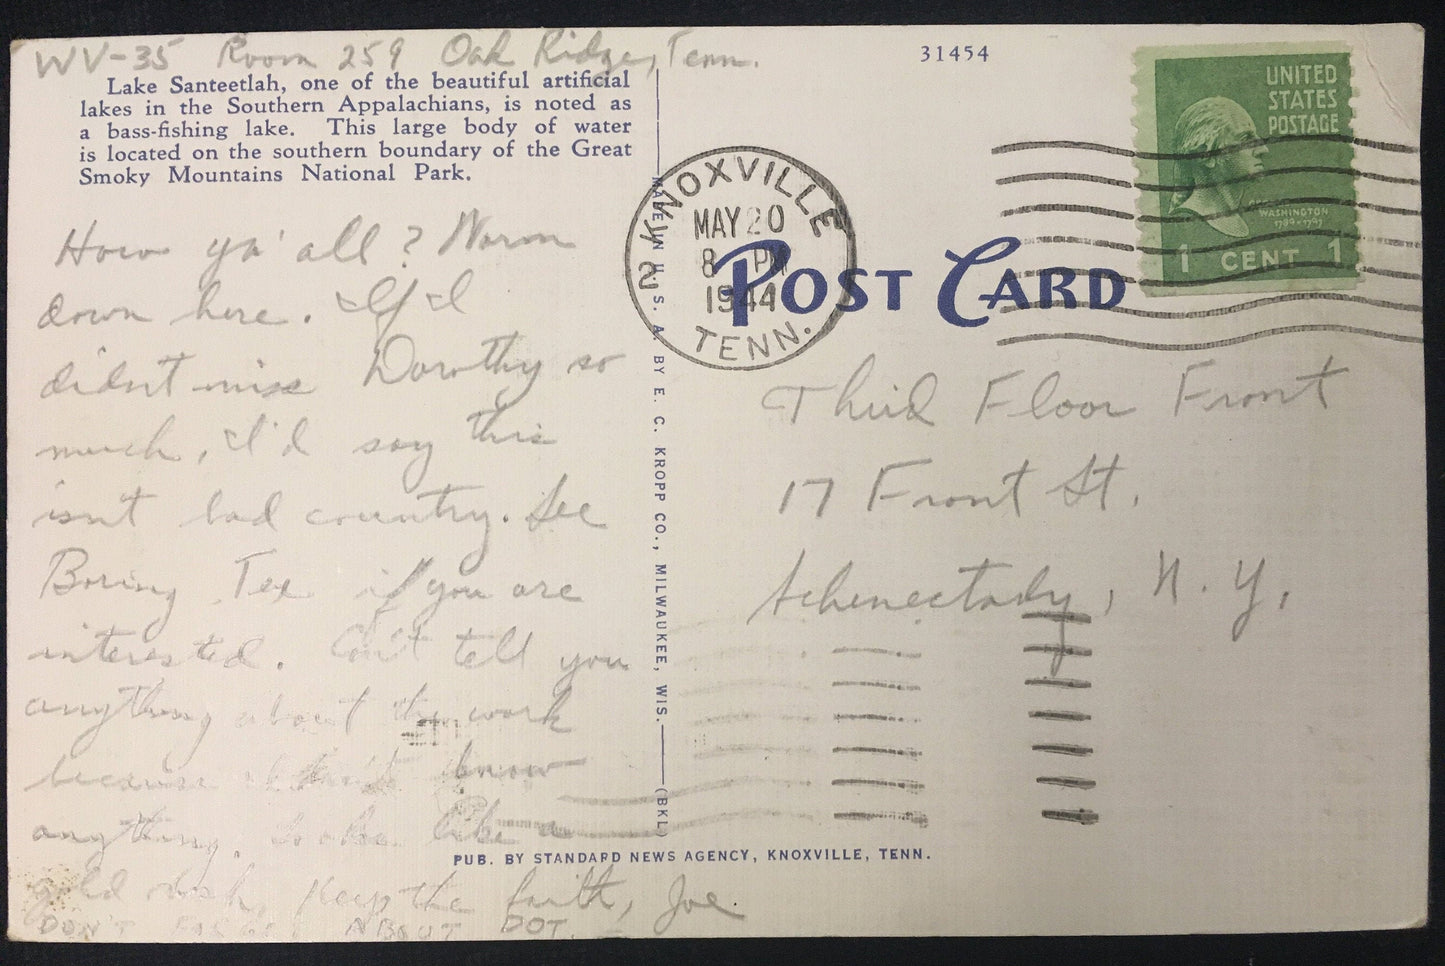 WV-35 Room 259 Oak Ridge, Tenn.
Lake Santeetlah, one of the beautiful artificial
lakes in the Southern Appalachians, is noted as
a bass-fishing lake. This large body of water
is located on the southern boundary of the Great
Smoky Mountains National Park.
How ya' all? Warm
down here. If I
didn't miss Dorothy so
much, I'd say this
isn't bad country. See
Boring, Tex if you are
interested. Can't tell you
anything about the work
because I don't know
anything. Looks like a
gold rush, Keep the faith, Joe
DON'T FORGET ABOUT DOT.
MADE IN U. S. A. BY E. C. KROPP CO., MILWAUKEE, WIS. (BKL)
31454
KNOXVILLE
MAY 20
8 PM
1944
TENN.
2
POST CARD
UNITED
STATES
POSTAGE
WASHINGTON
1789-1797
1 CENT 1
Third Floor Front
17 Front St.
Schenectady, N. Y.
PUB. BY STANDARD NEWS AGENCY, KNOXVILLE, TENN.